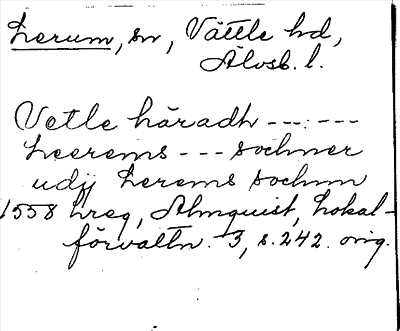 Lerum, sn, Vättle hd,
Älvsb. l.
Vetle häradh ---.---
Leerems --- sochner
udjj Lerems sochnn
1558 hreg, Almquist, Lokal-
förvaltn. 3, s. 242. orig.